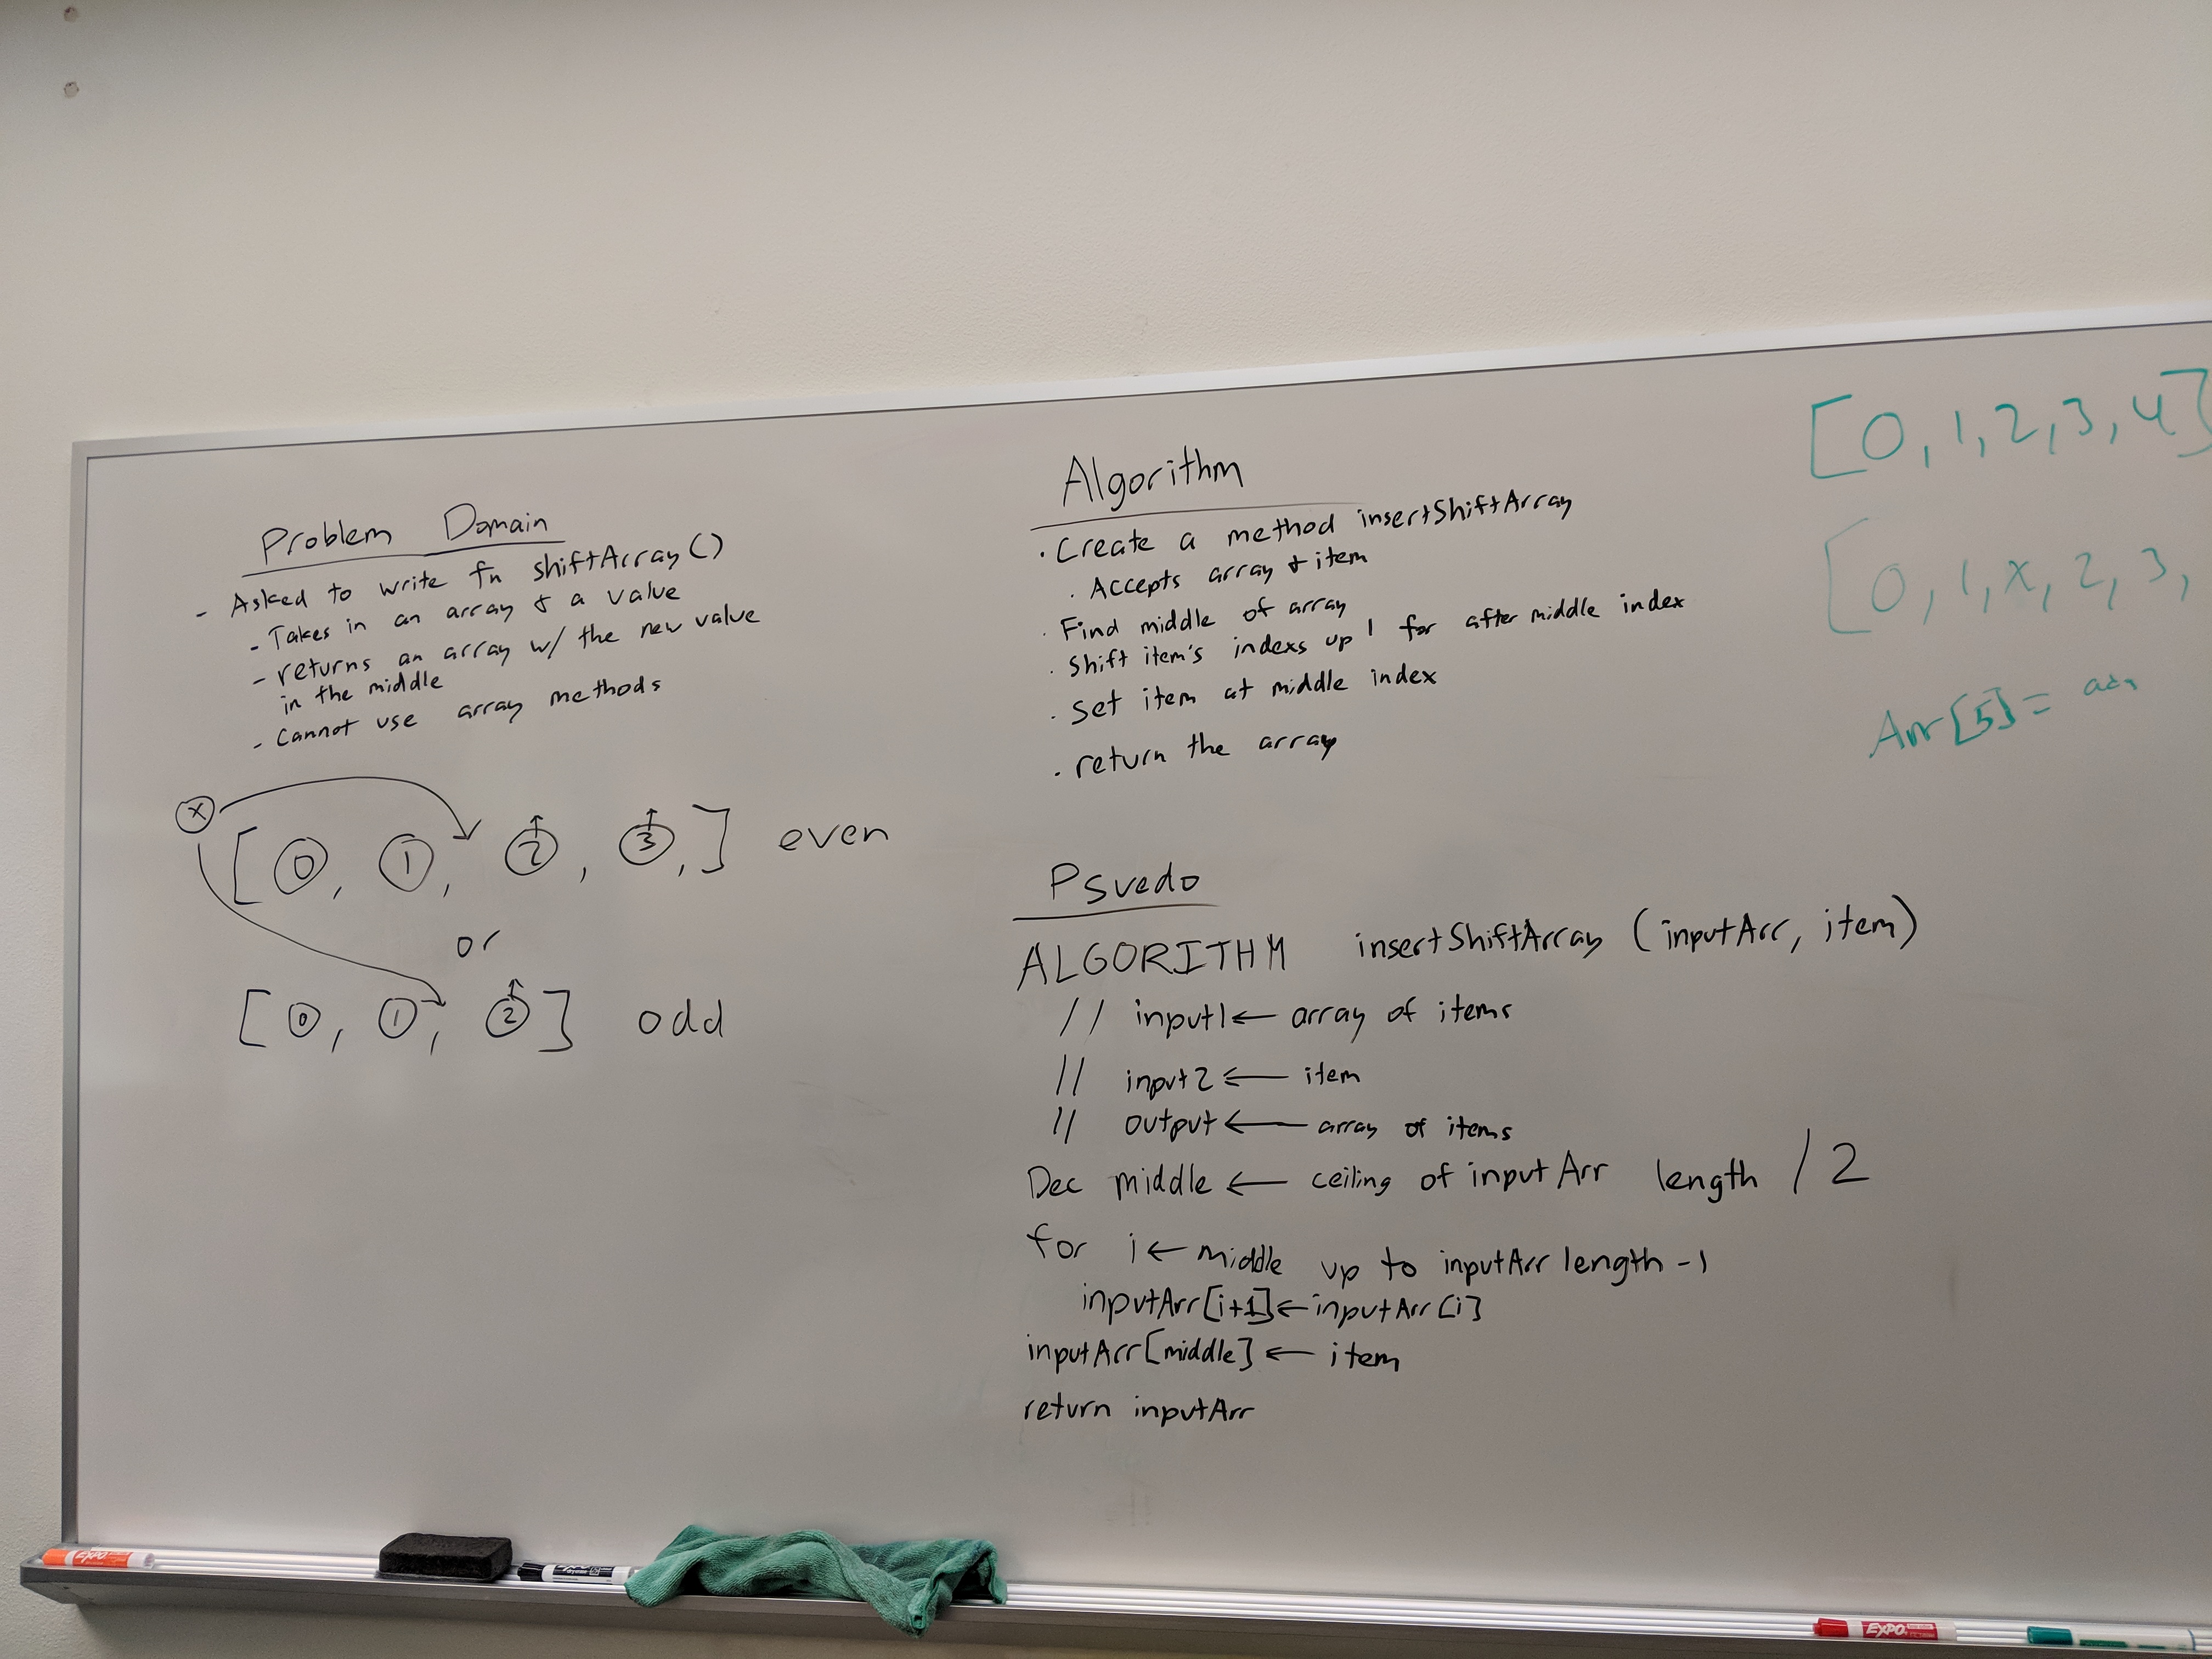 Problem Domain
- Asked to write fn shiftArray()
- Takes in an array & a value
- returns an array w/ the new value
in the middle
- Cannot use array methods
x
[0, 1, 2, 3,] even
or
[0, 1, 2] odd
Algorithm
· Create a method insertShiftArray
· Accepts array & item
· Find middle of array
· Shift item's indexs up 1 for after middle index
· Set item at middle index
· return the array
Psuedo
ALGORITHM insertShiftArray (inputArr, item)
// input1 ← array of items
// input2 ← item
// output ← array of items
Dec middle ← ceiling of inputArr length / 2
for i ← middle up to inputArr length -1
inputArr[i+1] ← inputArr[i]
inputArr[middle] ← item
return inputArr
[0, 1, 2, 3, 4]
[0, 1, x, 2, 3,
Arr[5] =
EXPO
EXPO
EXPO